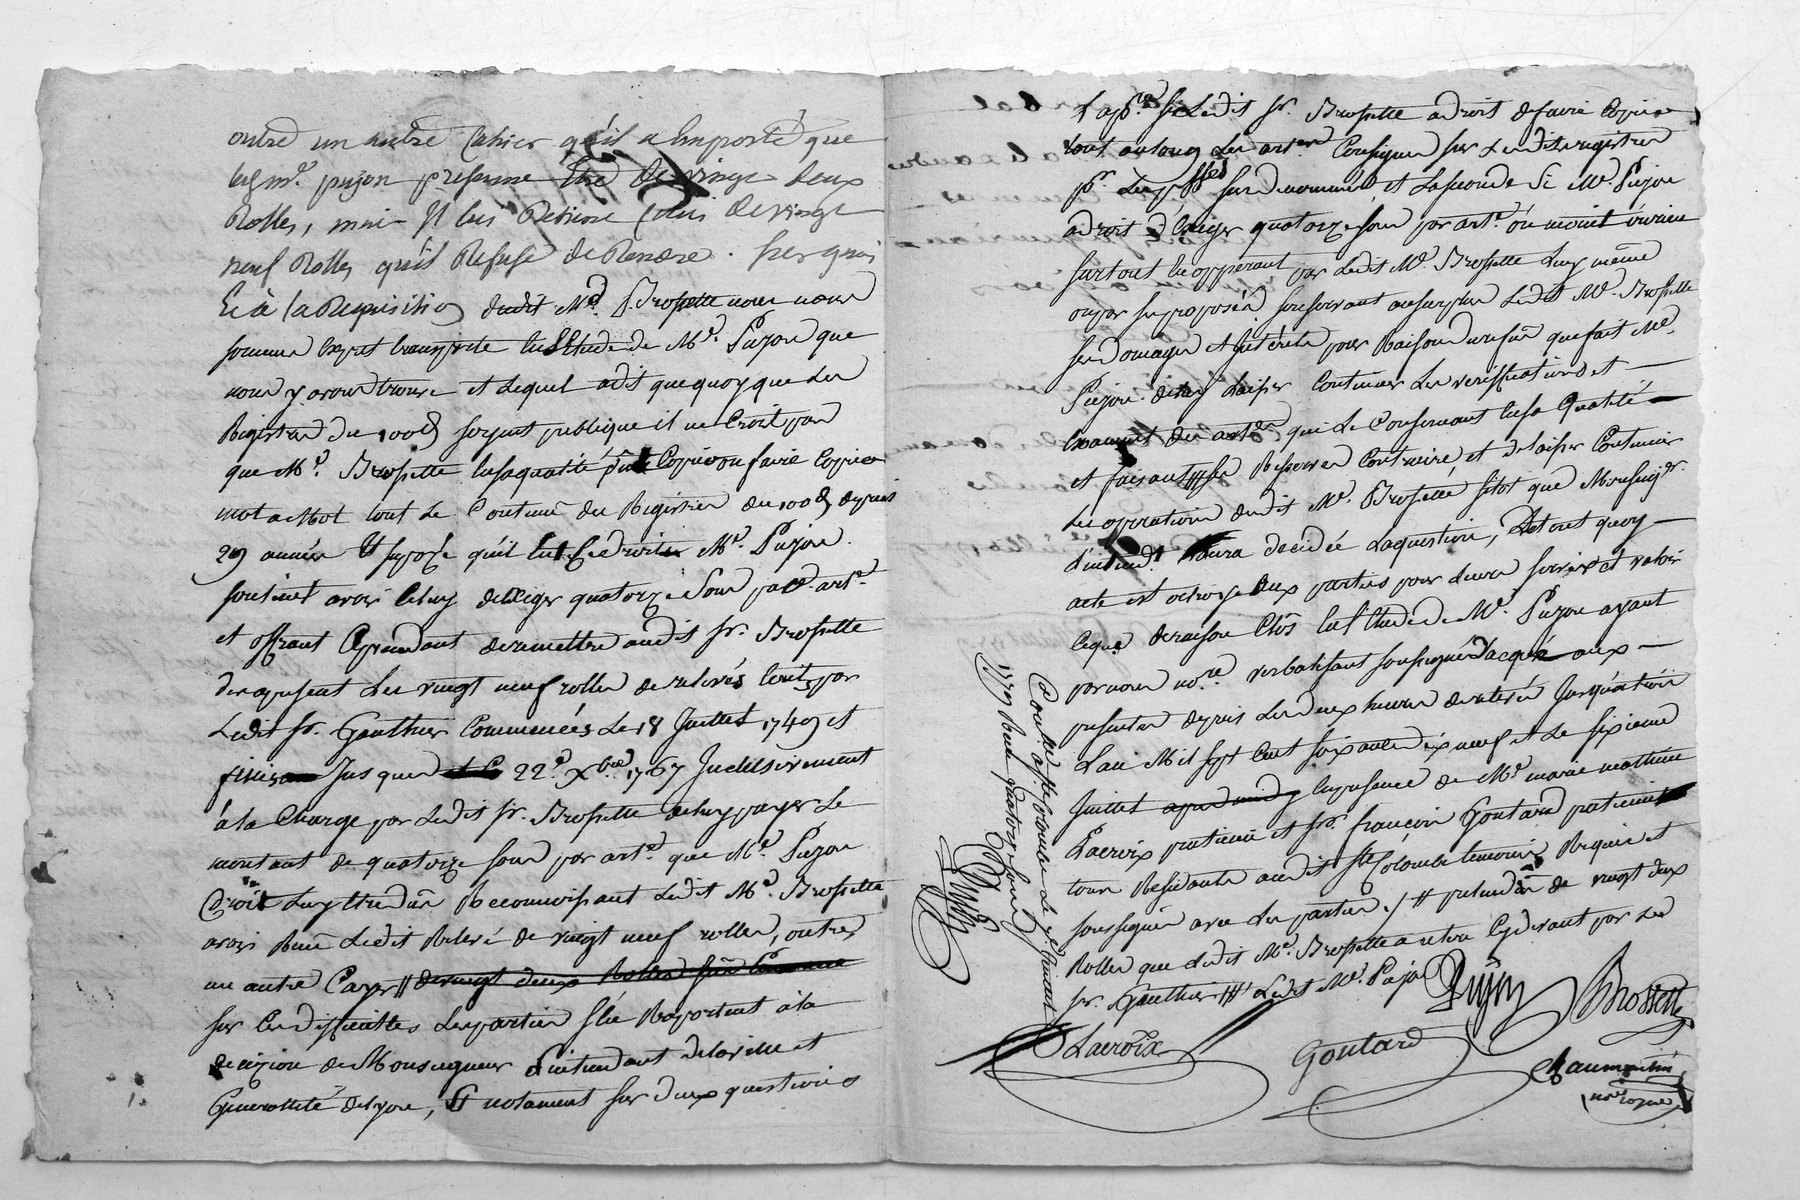 outre un autre Cahier qu'il a Emporté que
led mr. pujon presume Etre de vingt deux
Rolles, mais Il lui Retient Celui de vingt
neuf Rolles qu'il Refuse de Rendre. sur quoi
Et à la Requisition dudit Mr. Brossette nous nous
sommes Exprès transporté En l'Etude de Mr. Pujon que
nous y avons trouvé et Lequel a dit que quoy que Les
Registres du 100e soyent publique il ne Croit pas
que Mr. Brossette En sa qualité puisse Copier ou faire Copier
mot a Mot tout Le Contenu des Registres du 100e depuis
29 années Et suposé qu'il En Eut Le droit Mr. Pujon
soutient avoir Celuy d'Exiger quatorze Sous par artc.
et offrant Cependant de remettre audit sr. Brossette
des apresent Les vingt neuf rolles de relevés Ecrits par
Ledit sr. Gouttier Commencés Le 18 Juillet 1749 et
finis Jusques 22e Xbre 1767 Inclusivement
à la Charge par Ledit sr. Brossette de luy payer Le
montant de quatorze sous par artc. que Mr. Pujon
Croit Luy Etre dûs Reconnoissant Ledit Mr. Brossette
avoir Remis Ledit Relevé de vingt neuf rolles, outre
un autre Cayer # de vingt deux Rolles
sur Ces difficultés Les parties s'En Raportent à la
decizion de Monseigneur L'intendant de la ville et
Generallité de Lyon, Et notament sur deux questions
La pre. si Ledit sr. Brossette a droit de faire Copier
tout au long Les artes Consignés sur Lesdits registres
sus denommés et La seconde si Mr. Pujon
a droit d'Exiger quatorze sous par artc. ou moins
surtout En opperant par Ledit Mr. Brossette Luy même
ou par se reservant au surplus Ledit Mr. Brossette
ses domages et Intérets pour Raison du refus que fait Mr.
Pujon de luy Laisser Continuer Les verifications et
Examens des artes qui Le Conservent En sa Qualité
et faisant Reserves Contraire, et de laisser Continuer
Les operations dudit Mr. Brossette sitot que Monseigr.
L'intendt. Laura decidée La question, De tout quoy
acte est octroyé aux parties pour Leur servir et valoir
Ce que de raison Clos En l'Etude de Mr. Pujon ayant
par nous nore. verbalisant soussigné vacqué aux
presentes depuis Les deux heures de relevée Jusqu'a six
L'an Mil sept cent soixante dix neuf et Le sixieme
Juillet En presence de Mr. marie mathieu
Lacroix praticien et sr. françois Goutard praticien
tous Residants audit Ste Colombe temoins Requis et
soussignés avec Les parties / # de vingt deux
Rolles que Ledit Mr. Brossette a retenu Cy devant par Led
sr. Gouttier # Ledit Mr. Pujon
Pujon Brossette
Lacroix Goutard Chaumartin
nore royal
Conlle. a Ste Colombe Le
1779 Reçu quatorze sous
Pujon